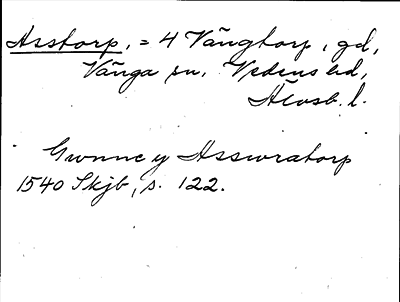 Asstorp, = 4 Vängtorp, gd,
Vånga sn, Vedens hd,
Älvsb. l.
Gunne y Asswratorp
1540 Skjb, s. 122.